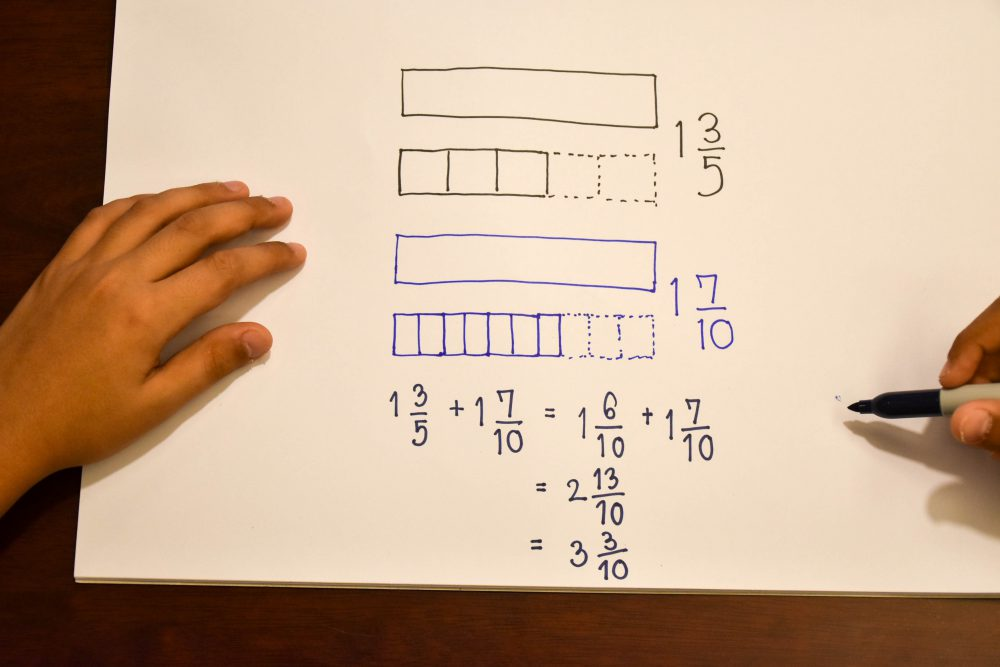 1 3/5
1 7/10
1 3/5 + 1 7/10 = 1 6/10 + 1 7/10
= 2 13/10
= 3 3/10